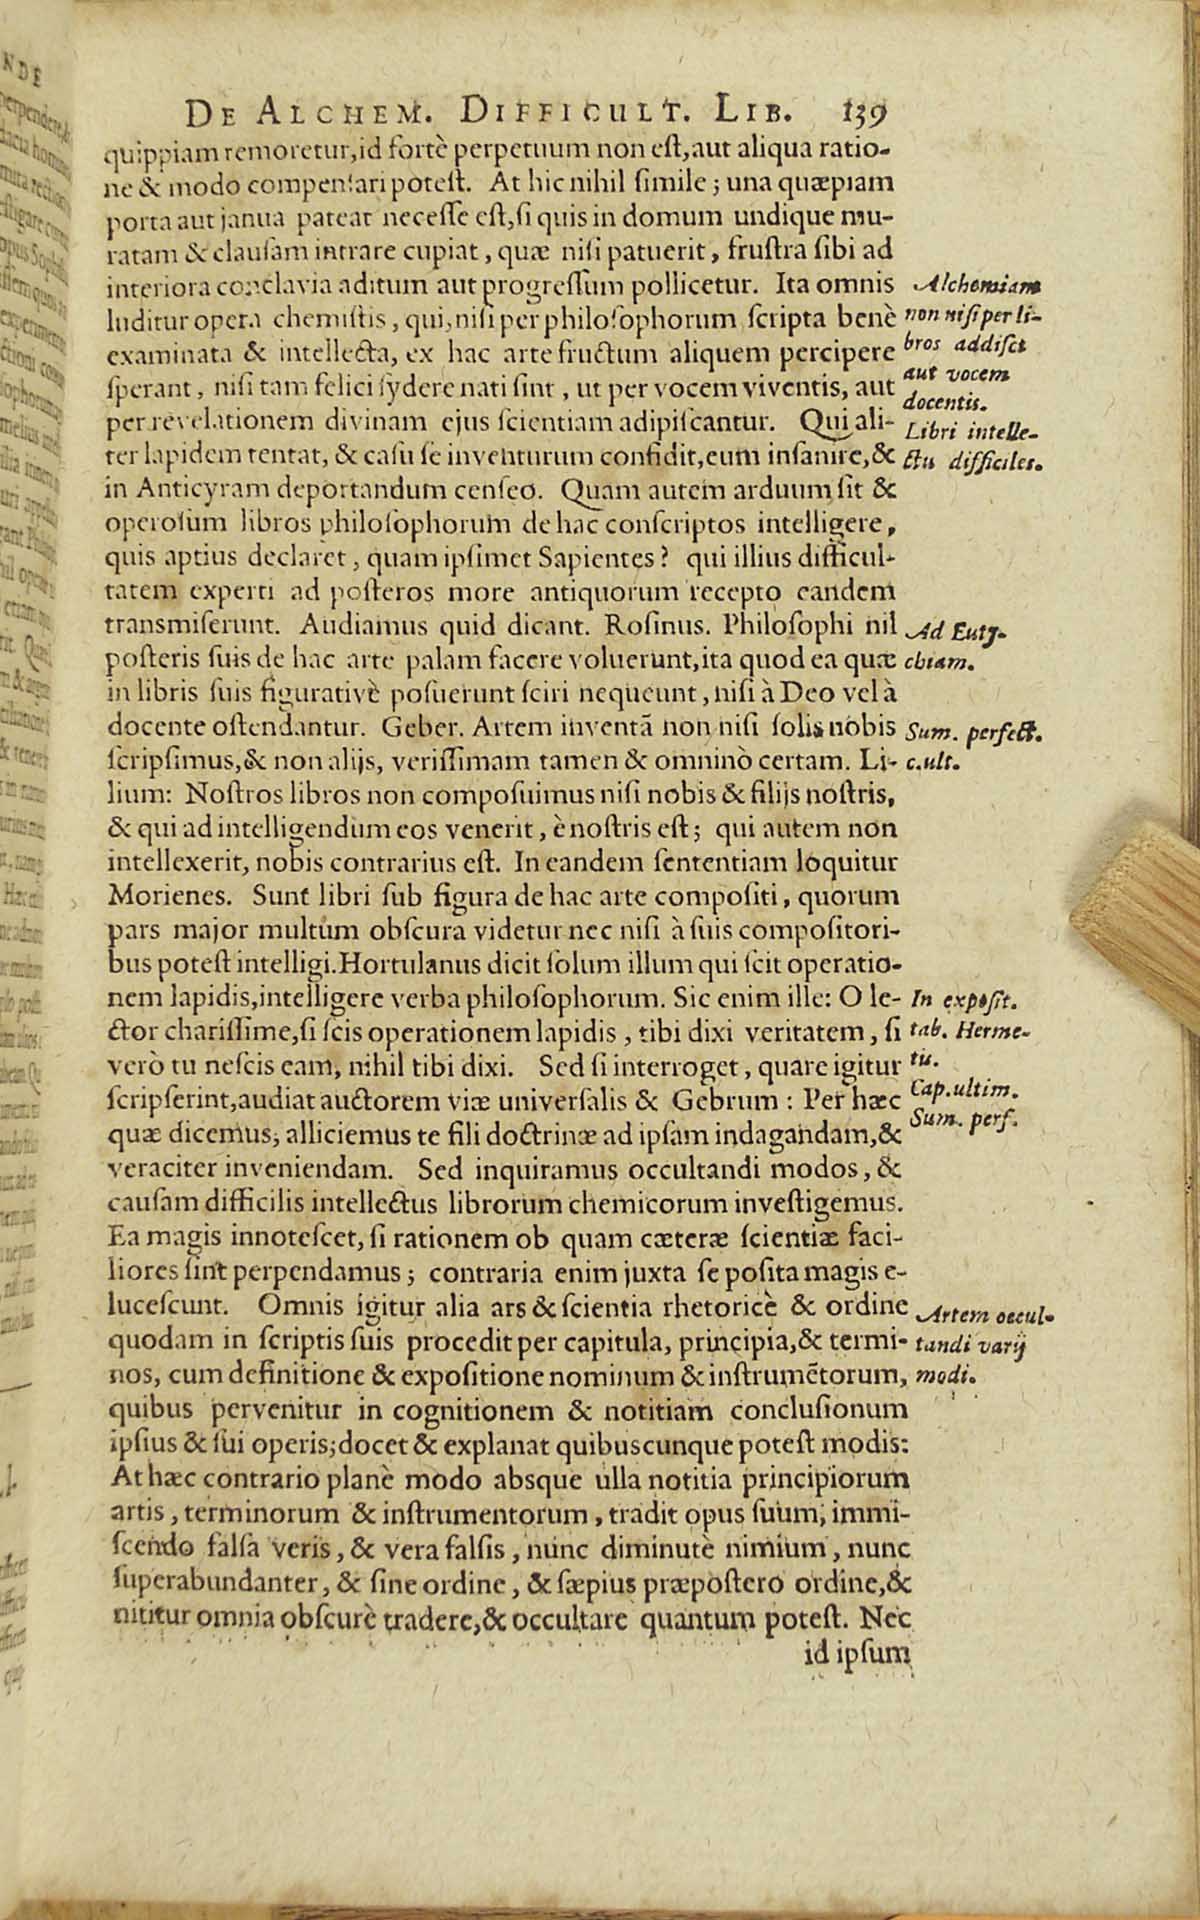 DE ALCHEM. DIFFICULT. LIB. 139
quippiam remoretur, id fortè perpetuum non est, aut aliqua ratio-
ne & modo compensari potest. At hic nihil simile; una quæpiam
porta aut janua pateat necesse est, si quis in domum undique mu-
ratam & clausam intrare cupiat, quæ nisi patuerit, frustra sibi ad
interiora conclavia aditum aut progressum pollicetur. Ita omnis
luditur opera chemistis, qui, nisi per philosophorum scripta benè
examinata & intellecta, ex hac arte fructum aliquem percipere
sperant, nisi tam felici sydere nati sint, ut per vocem viventis, aut
per revelationem divinam ejus scientiam adipiscantur. Qui ali-
ter lapidem tentat, & casu se inventurum confidit, eum insanire, &
in Anticyram deportandum censeo. Quam autem arduum sit &
operosum libros philosophorum de hac conscriptos intelligere,
quis aptius declaret, quam ipsimet Sapientes? qui illius difficul-
tatem experti ad posteros more antiquorum recepto eandem
transmiserunt. Audiamus quid dicant. Rosinus. Philosophi nil
posteris suis de hac arte palam facere voluerunt, ita quod ea quæ
in libris suis figurativè posuerunt sciri nequeunt, nisi à Deo vel à
docente ostendantur. Geber. Artem inventā non nisi solis nobis
scripsimus, & non alijs, verissimam tamen & omninò certam. Li-
lium: Nostros libros non composuimus nisi nobis & filijs nostris,
& qui ad intelligendum eos venerit, è nostris est; qui autem non
intellexerit, nobis contrarius est. In eandem sententiam loquitur
Morienes. Sunt libri sub figura de hac arte compositi, quorum
pars major multùm obscura videtur nec nisi à suis compositori-
bus potest intelligi. Hortulanus dicit solum illum qui scit operatio-
nem lapidis, intelligere verba philosophorum. Sic enim ille: O le-
ctor charissime, si scis operationem lapidis, tibi dixi veritatem, si
verò tu nescis eam, nihil tibi dixi. Sed si interroget, quare igitur
scripserint, audiat auctorem viæ universalis & Gebrum: Per hæc
quæ dicemus, alliciemus te fili doctrinæ ad ipsam indagandam, &
veraciter inveniendam. Sed inquiramus occultandi modos, &
causam difficilis intellectus librorum chemicorum investigemus.
Ea magis innotescet, si rationem ob quam cæteræ scientiæ faci-
liores sint perpendamus; contraria enim juxta se posita magis e-
lucescunt. Omnis igitur alia ars & scientia rhetoricè & ordine
quodam in scriptis suis procedit per capitula, principia, & termi-
nos, cum definitione & expositione nominum & instrumētorum,
quibus pervenitur in cognitionem & notitiam conclusionum
ipsius & sui operis; docet & explanat quibuscunque potest modis:
At hæc contrario planè modo absque ulla notitia principiorum
artis, terminorum & instrumentorum, tradit opus suum, immi-
scendo falsa veris, & vera falsis, nunc diminutè nimium, nunc
superabundanter, & sine ordine, & sæpius præpostero ordine, &
nititur omnia obscurè tradere, & occultare quantum potest. Nec
id ipsum
Alchemiam
non nisi per li-
bros addisci
aut vocem
docentis.
Libri intelle-
ctu difficiles.
Ad Euty-
chiam.
Sum. perfect.
c. ult.
In exposit.
tab. Herme-
tis.
Cap. ultim.
Sum. perf.
Artem occul-
tandi varij
modi.